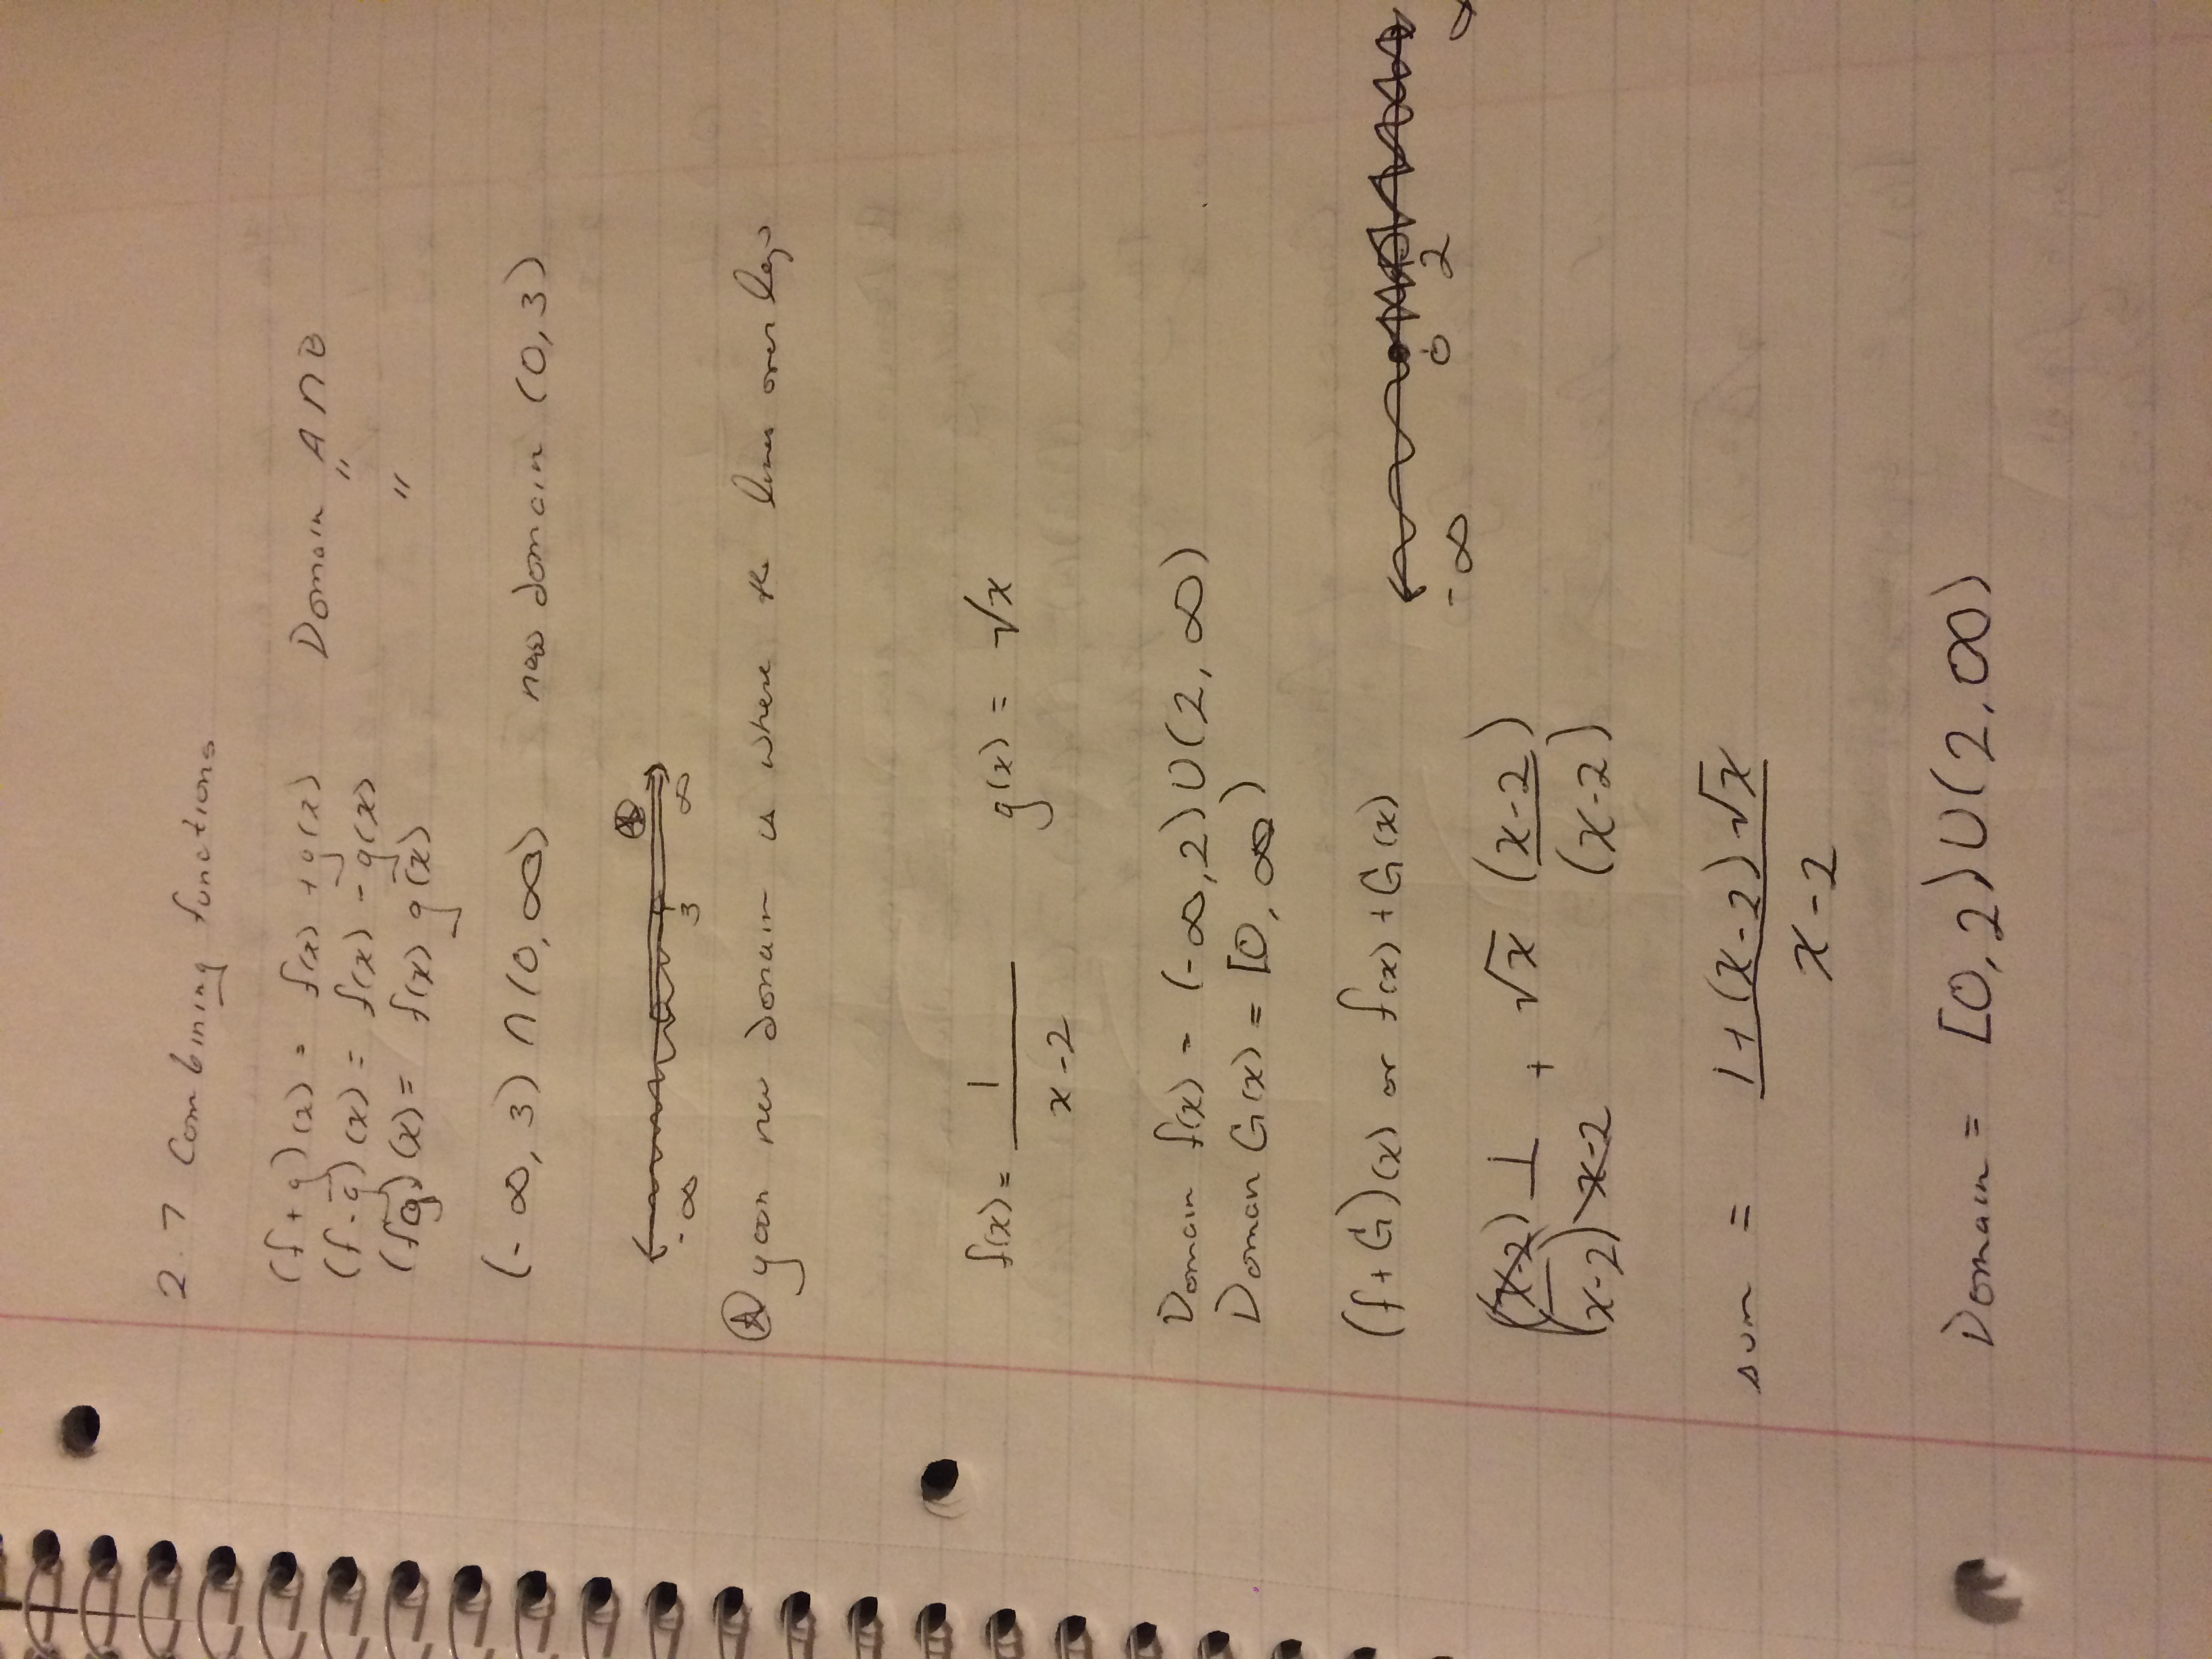 2.7 Combining functions
(f+g)(x) = f(x) + g(x) Domain A∩B
(f-g)(x) = f(x) - g(x) "
(fg)(x) = f(x) g(x) "
(-∞, 3) ∩ (0, ∞) new domain (0, 3)
-∞ 3 ∞
your new domain is where the lines overlap
f(x) = 1/(x-2) g(x) = √x
Domain f(x) = (-∞,2)∪(2,∞)
Domain G(x) = [0, ∞)
(f+G)(x) or f(x)+G(x)
-∞ 0 2
(x-2)/(x-2) 1/(x-2) + √x (x-2)/(x-2)
sum = (1+(x-2)√x)/(x-2)
Domain = [0,2)∪(2,∞)